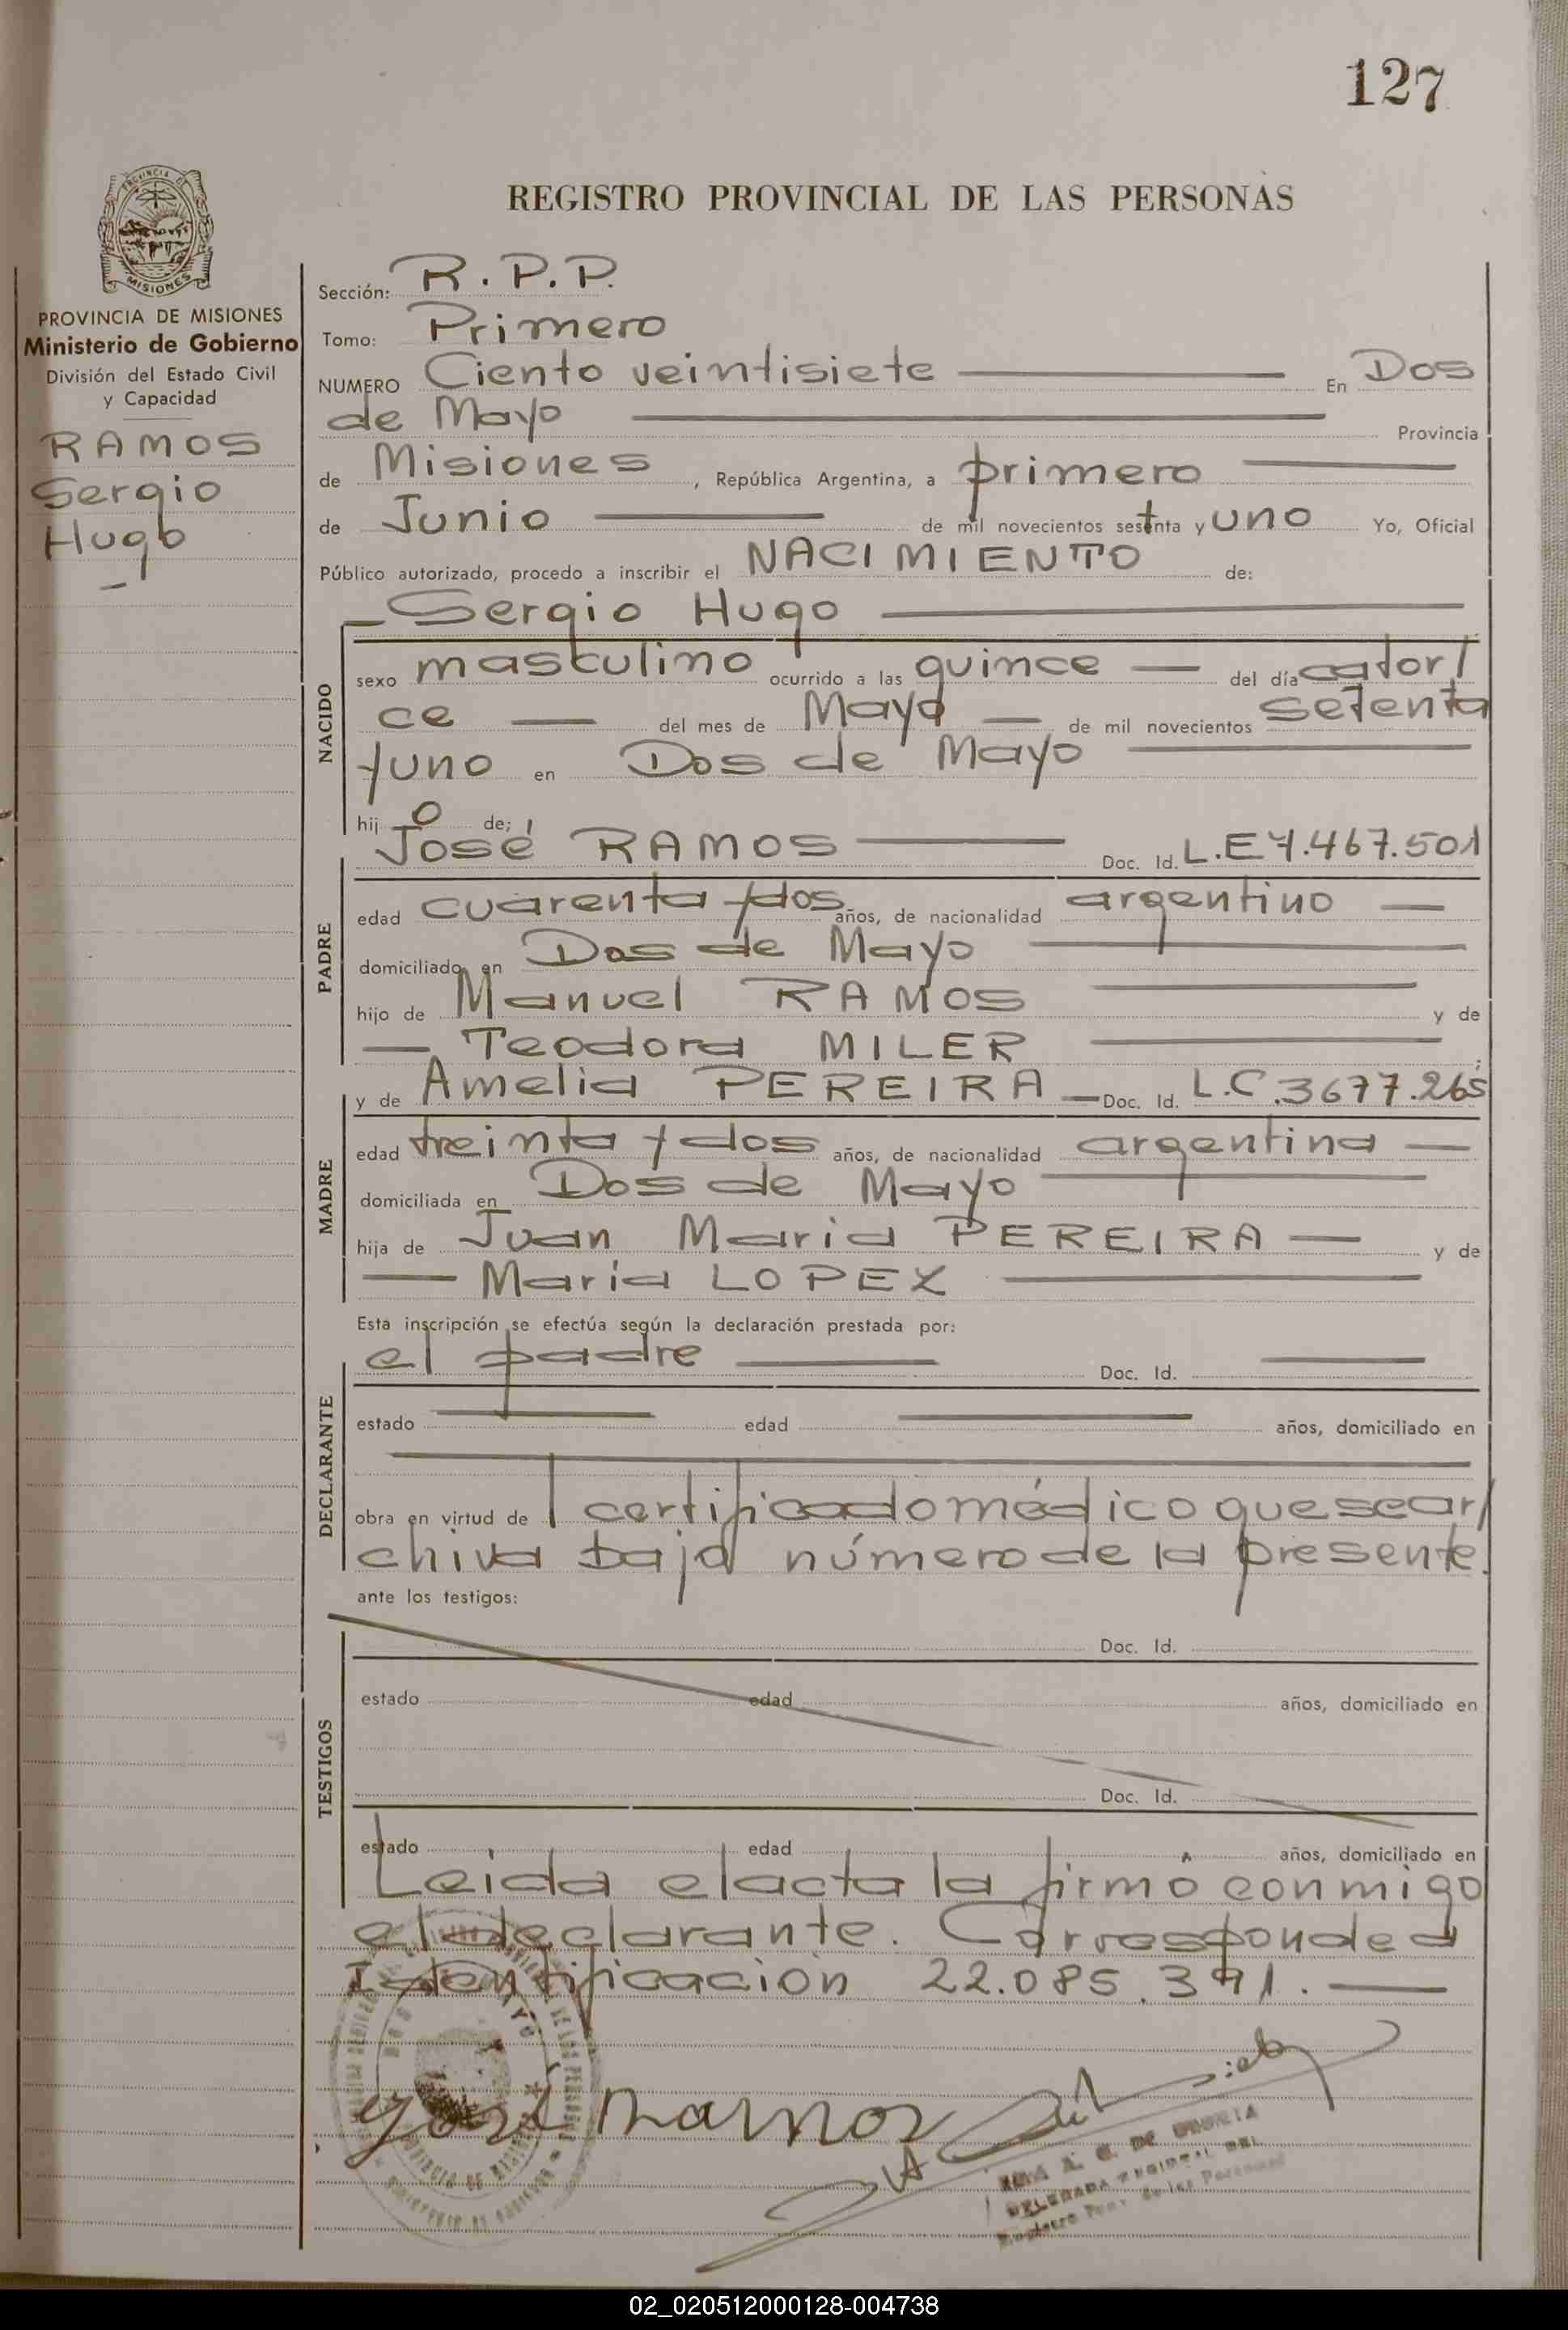 127
REGISTRO PROVINCIAL DE LAS PERSONAS
PROVINCIA DE MISIONES
Ministerio de Gobierno
División del Estado Civil
y Capacidad
RAMOS
Sergio
Hugo
Sección: R.P.P.
Tomo: Primero
NUMERO Ciento veintisiete En Dos
de Mayo Provincia
de Misiones, República Argentina, a primero
de Junio de mil novecientos setenta y uno Yo, Oficial
Público autorizado, procedo a inscribir el NACIMIENTO de:
Sergio Hugo
NACIDO
sexo masculino ocurrido a las quince del día cator/
ce del mes de Mayo de mil novecientos setenta
yuno en Dos de Mayo
hijo de;
José RAMOS Doc. Id. L.E 7.467.501
PADRE
edad cuarenta y dos años, de nacionalidad argentino
domiciliado en Dos de Mayo
hijo de Manuel RAMOS y de
Teodora MILER
y de Amelia PEREIRA Doc. Id. L.C.3677.265
MADRE
edad treinta y dos años, de nacionalidad argentina
domiciliada en Dos de Mayo
hija de Juan Maria PEREIRA y de
María LOPEZ
Esta inscripción se efectúa según la declaración prestada por:
el padre Doc. Id.
DECLARANTE
estado edad años, domiciliado en
obra en virtud de l certificado médico que se ar/
chiva bajo número de la presente.
ante los testigos:
Doc. Id.
TESTIGOS
estado edad años, domiciliado en
Doc. Id.
estado edad años, domiciliado en
Leida el acta la firmó conmigo
el declarante. Corresponde a
Identificación 22.085.391.
José Ramos
02_020512000128-004738